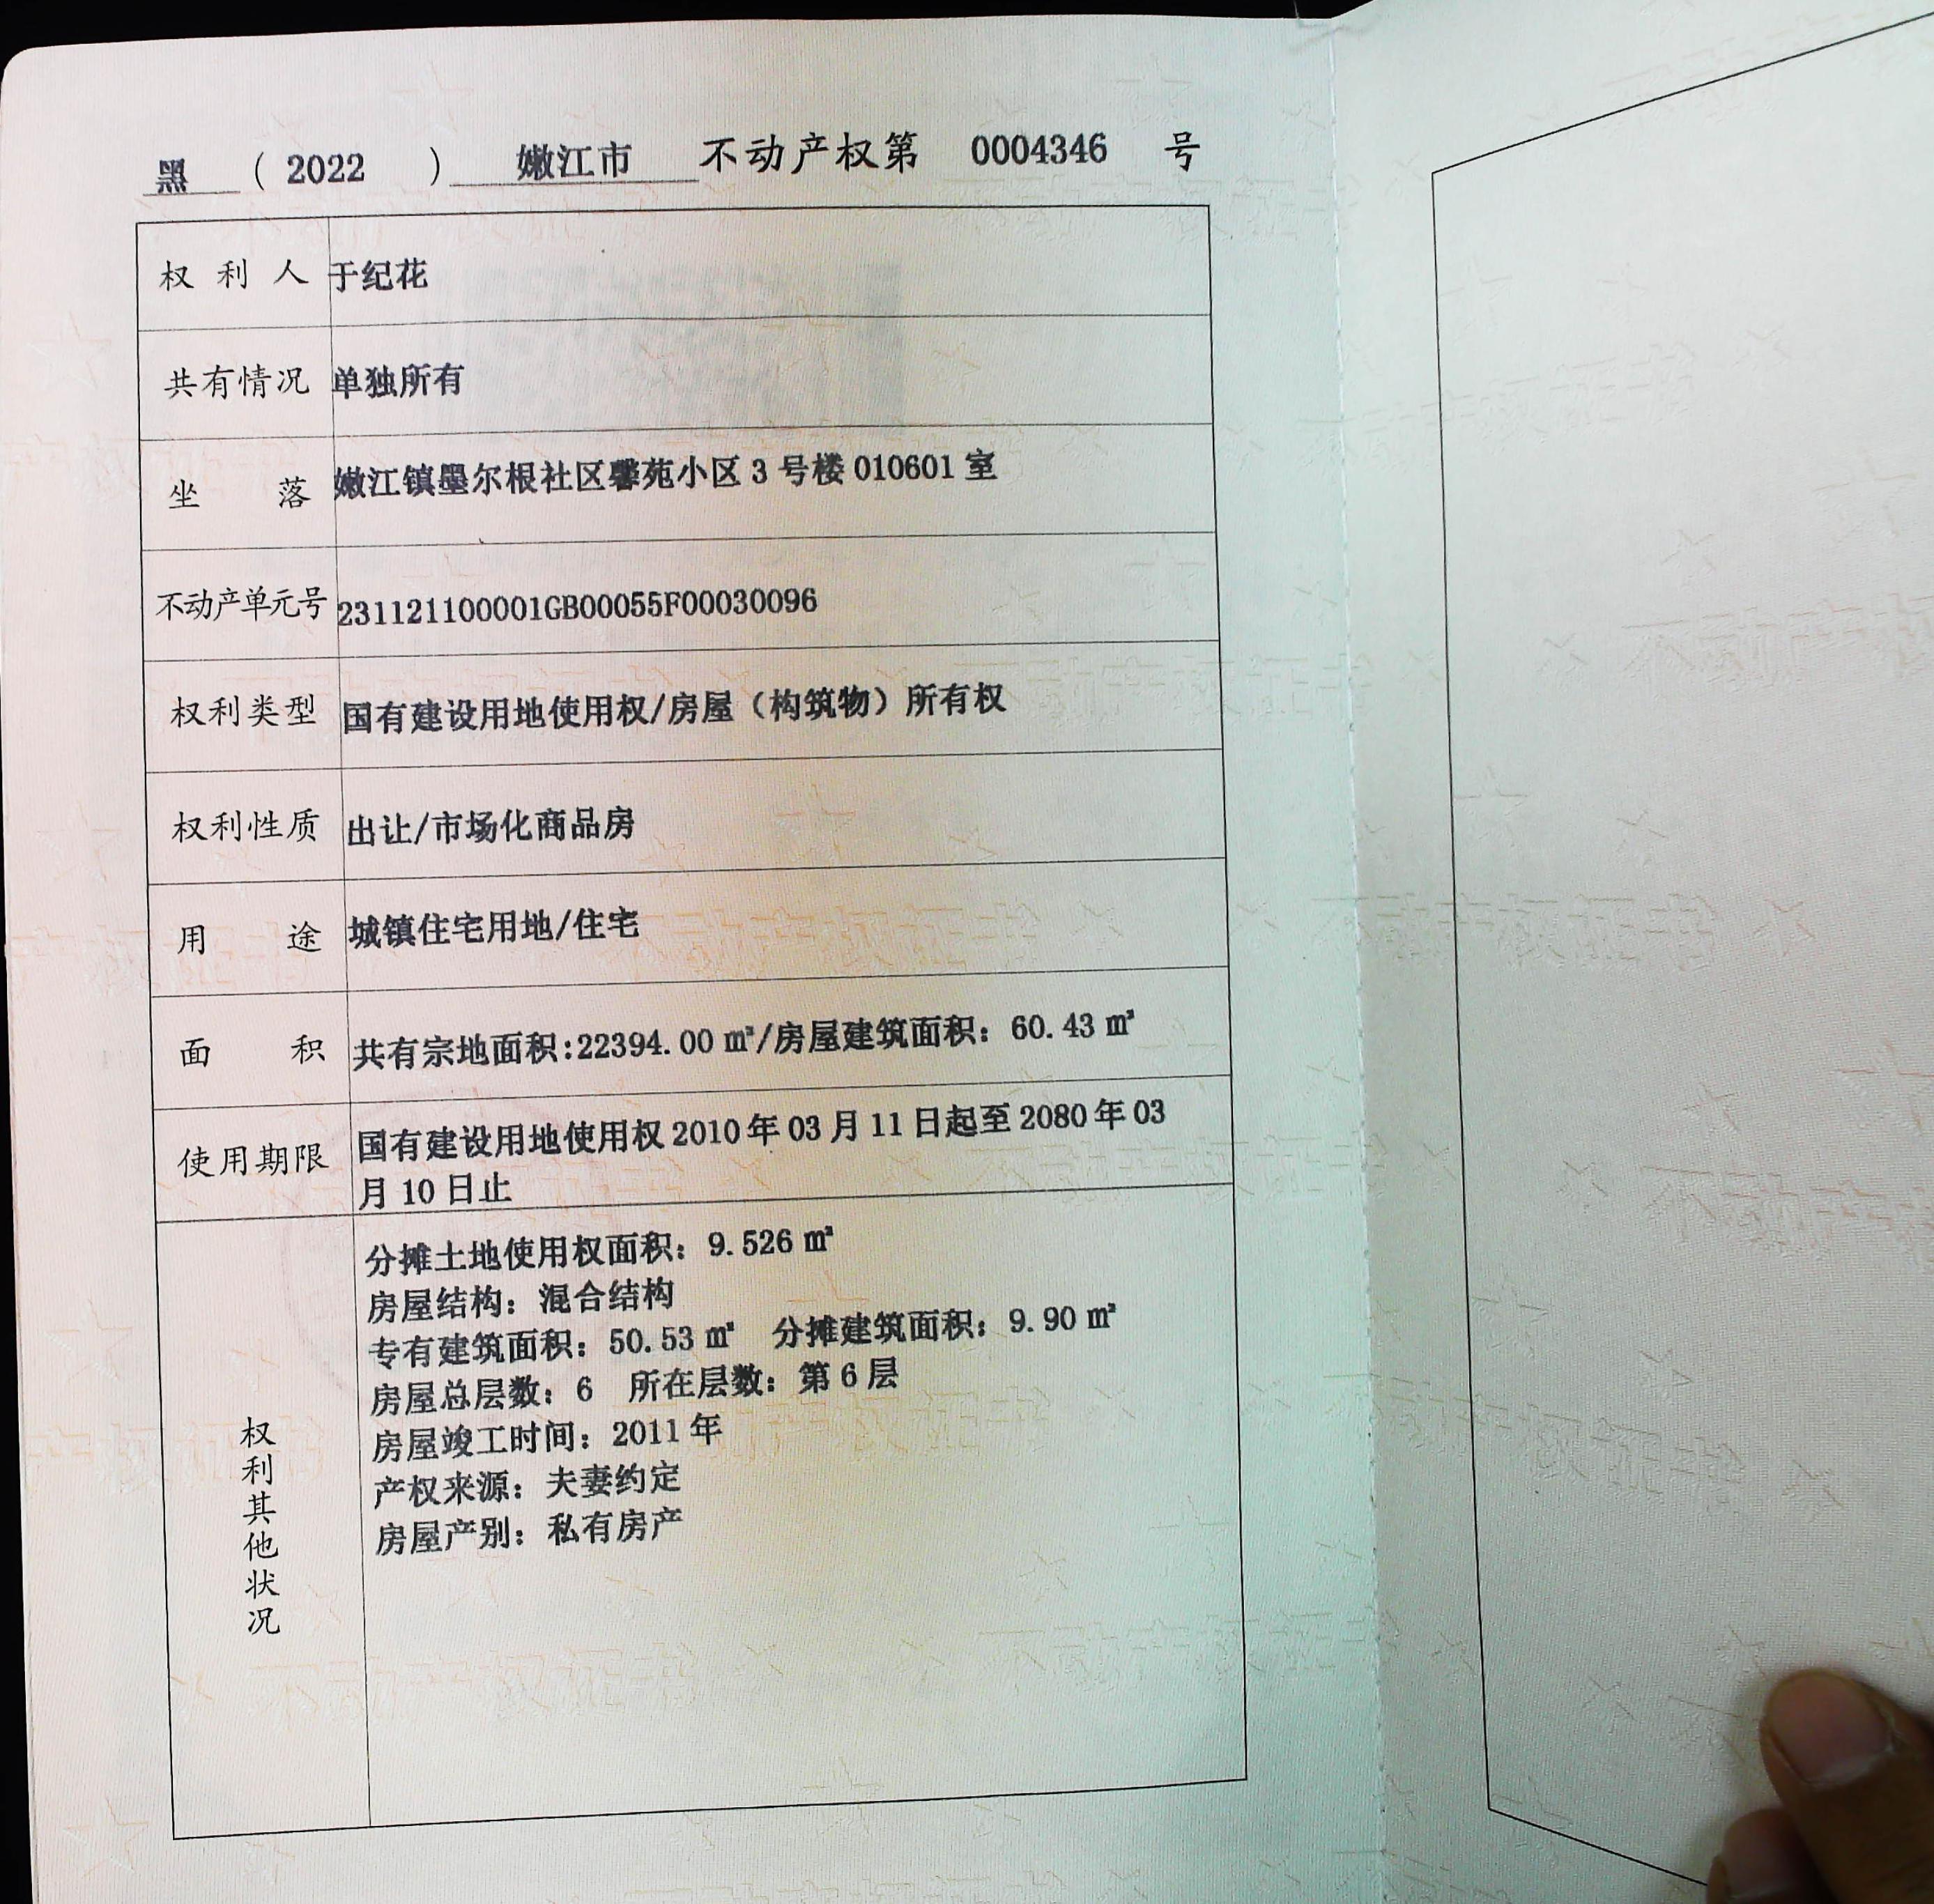 黑 (2022) 嫩江市 不动产权第 0004346 号
权利人 于纪花
共有情况 单独所有
坐落 嫩江镇墨尔根社区馨苑小区 3 号楼 010601 室
不动产单元号 231121100001GB00055F00030096
权利类型 国有建设用地使用权/房屋（构筑物）所有权
权利性质 出让/市场化商品房
用途 城镇住宅用地/住宅
面积 共有宗地面积:22394.00 ㎡/房屋建筑面积：60.43 ㎡
使用期限 国有建设用地使用权 2010 年 03 月 11 日起至 2080 年 03
月 10 日止
权利其他状况
分摊土地使用权面积：9.526 ㎡
房屋结构：混合结构
专有建筑面积：50.53 ㎡ 分摊建筑面积：9.90 ㎡
房屋总层数：6 所在层数：第 6 层
房屋竣工时间：2011 年
产权来源：夫妻约定
房屋产别：私有房产